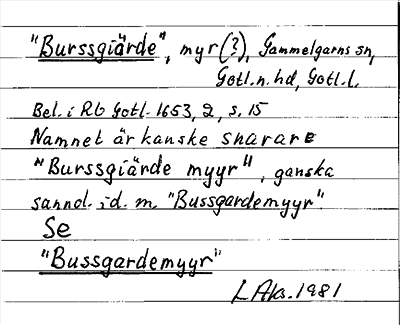 "Burssgiärde", myr(?), Gammelgarns sn,
Gotl.n.hd, Gotl.l.
Bel. i Rb Gotl. 1653, 2, s. 15
Namnet är kanske snarare
"Burssgiärde myyr", ganska
sannol. id. m. "Bussgardemyyr"
Se
"Bussgardemyyr"
1981